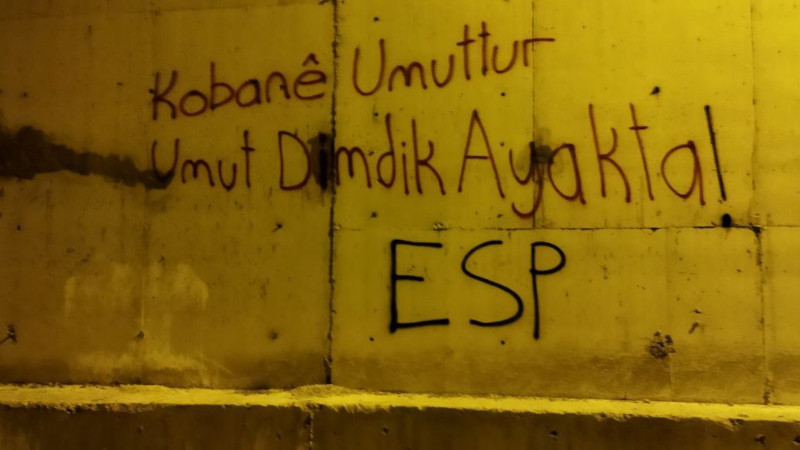 Kobanê Umuttur
Umut Dimdik Ayakta!
ESP